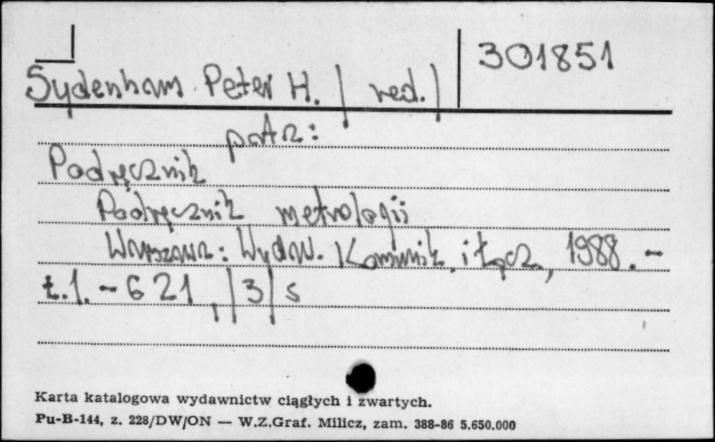 301851
Sydenham Peter H. /red./
patrz:
Podręcznik
Podręcznik metrologii
Warszawa: Wydaw. Komunik. i Łącz., 1988. -
t.1. - 621, /3/ s
Karta katalogowa wydawnictw ciągłych i zwartych.
Pu-B-144, z. 228/DW/ON — W.Z.Graf. Milicz, zam. 388-86 5.650.000